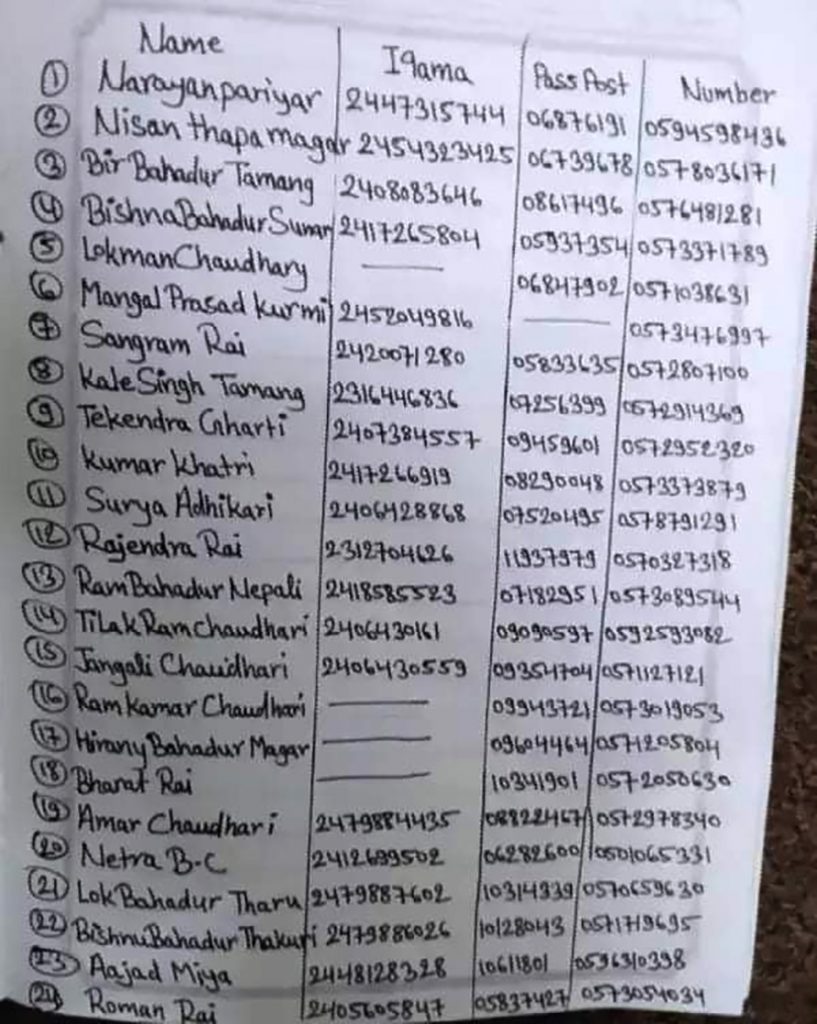 Name Iqama PassPost Number
① Narayanpariyar 2447315744 06876191 0594598436
② Nisan thapa magar 2454323425 06739678 0578036171
③ Bir Bahadur Tamang 2408083646 08617496 0576481281
④ Bishna Bahadur Sunar 2417265804 05937354 0573371789
⑤ Lokman Chaudhary — 06847902 0571038631
⑥ Mangal Prasad Kurmi 2452049816 — 0573476997
⑦ Sangram Rai 2420071280 05833635 0572807100
⑧ Kale Singh Tamang 2316446836 07256399 0572914369
⑨ Tekendra Gharti 2407384557 09459601 0572952320
⑩ Kumar Khatri 2417266919 08290048 0573373879
⑪ Surya Adhikari 2406428868 07520495 0578791291
⑫ Rajendra Rai 2312704626 11937979 0570327318
⑬ Ram Bahadur Nepali 2418585523 07182951 0573089544
⑭ Tilak Ram chaudhari 2406430161 09090597 0592593082
⑮ Jangali Chaudhari 2406430559 09354704 0571127121
⑯ Ram kamar Chaudhari — 09943721 0573019053
⑰ Hirany Bahadur Magar — 09604464 0571205804
⑱ Bharat Rai — 10341901 0572050630
⑲ Amar Chaudhari 2479884435 08822467 0572978340
⑳ Netra B-C 2412699502 06282600 0501065331
㉑ Lok Bahadur Tharu 2479887602 10314939 0570659630
㉒ Bishnu Bahadur Thakuri 2479886026 10128043 0571719695
㉓ Aajad Miya 2448128328 10611801 0596310398
㉔ Roman Rai 2405605847 05837427 0573054034